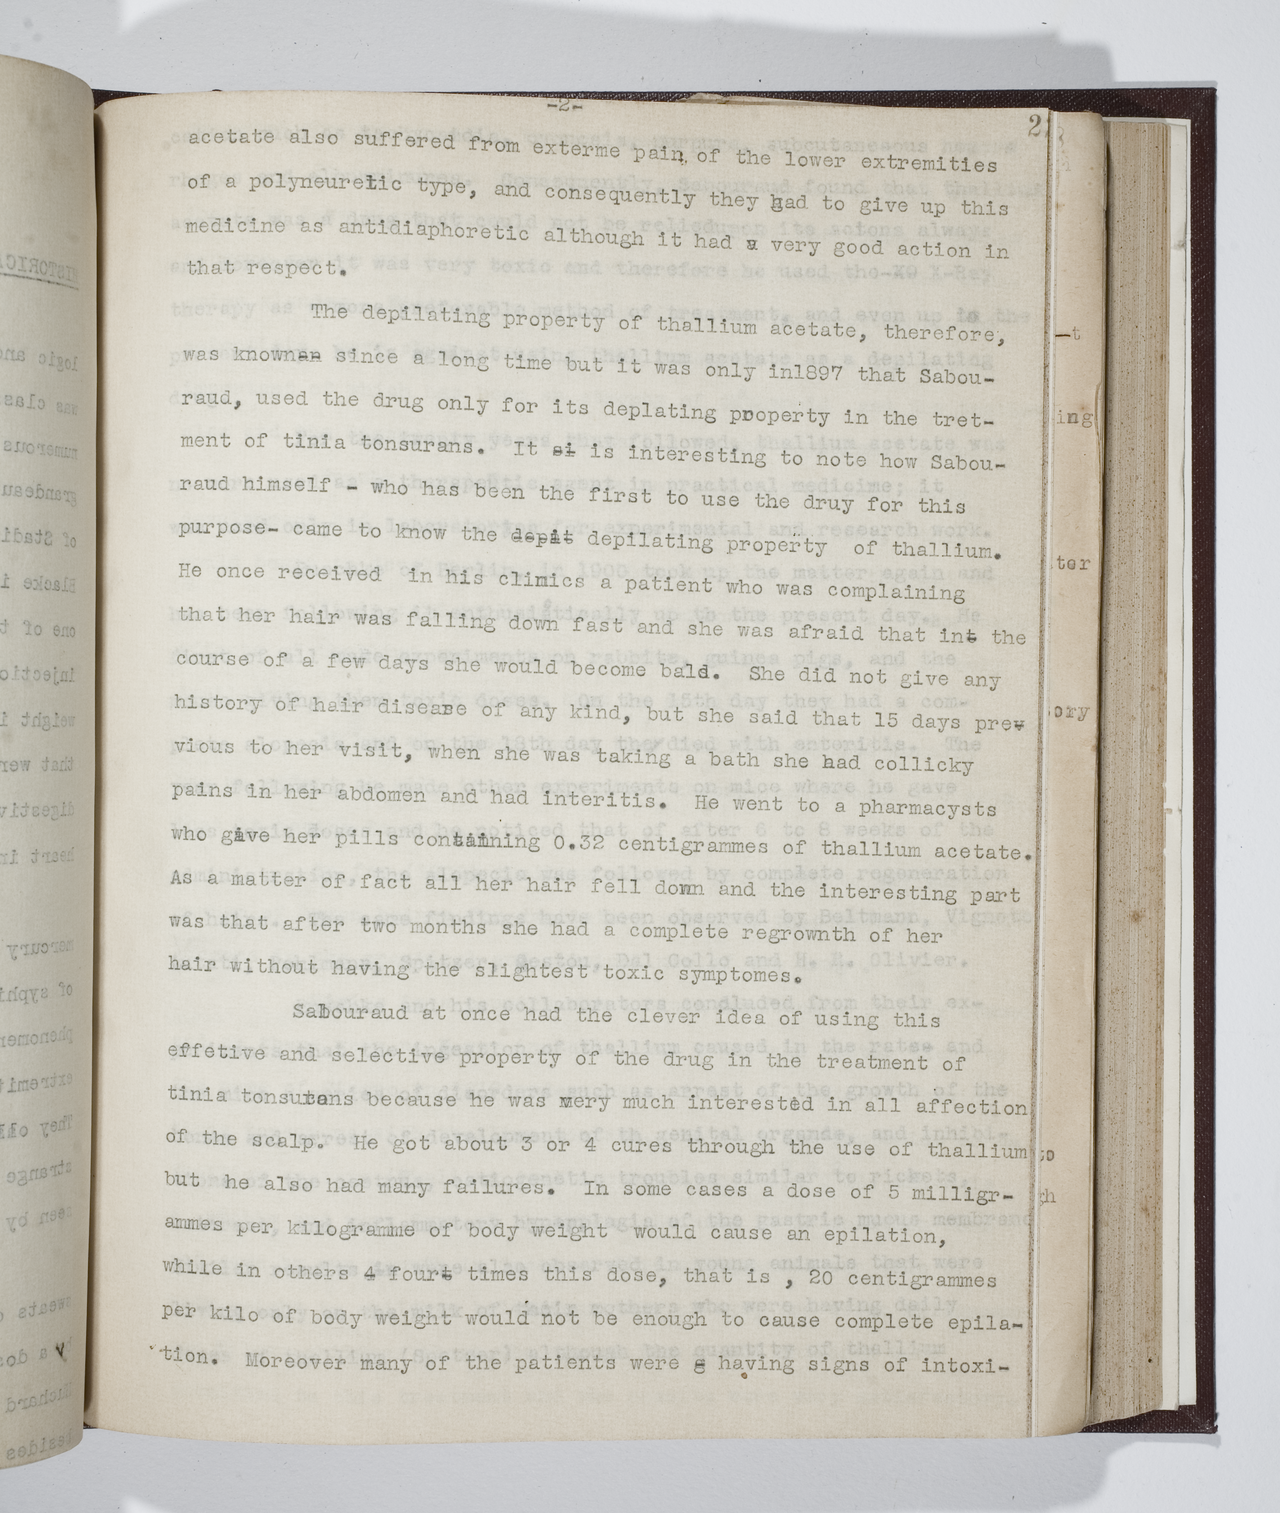 -2-
acetate also suffered from exterme pain, of the lower extremities
of a polyneuretic type, and consequently they had to give up this
medicine as antidiaphoretic although it had a very good action in
that respect.
The depilating property of thallium acetate, therefore,
was known since a long time but it was only in1897 that Sabou-
raud, used the drug only for its deplating property in the tret-
ment of tinia tonsurans. It si is interesting to note how Sabou-
raud himself - who has been the first to use the druy for this
purpose- came to know the depit depilating property of thallium.
He once received in his clinics a patient who was complaining
that her hair was falling down fast and she was afraid that in the
course of a few days she would become bald. She did not give any
history of hair disease of any kind, but she said that 15 days pre-
vious to her visit, when she was taking a bath she had collicky
pains in her abdomen and had interitis. He went to a pharmacysts
who gave her pills containing 0.32 centigrammes of thallium acetate.
As a matter of fact all her hair fell down and the interesting part
was that after two months she had a complete regrownth of her
hair without having the slightest toxic symptomes.
Sabouraud at once had the clever idea of using this
effetive and selective property of the drug in the treatment of
tinia tonsurans because he was very much interested in all affection
of the scalp. He got about 3 or 4 cures through the use of thallium
but he also had many failures. In some cases a dose of 5 milligr-
ammes per kilogramme of body weight would cause an epilation,
while in others 4 four times this dose, that is , 20 centigrammes
per kilo of body weight would not be enough to cause complete epila-
tion. Moreover many of the patients were having signs of intoxi-